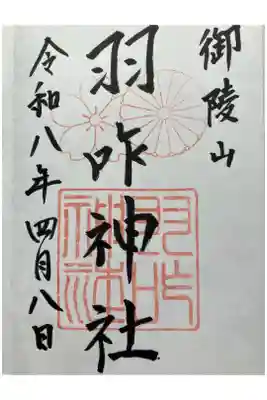 御陵山
羽咋神社
令和八年四月八日
羽咋神社